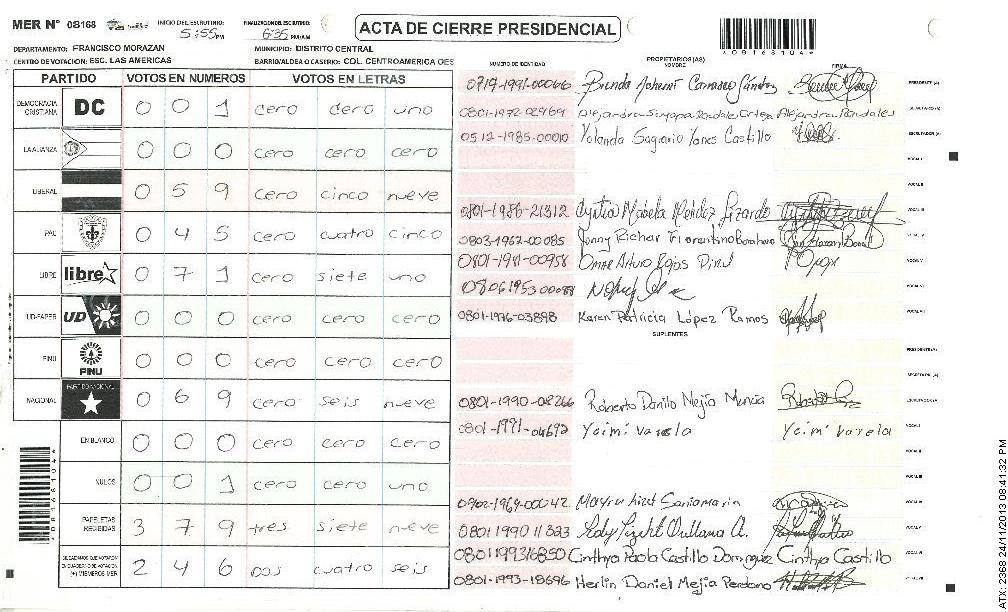 MER N° 08168 INICIO DEL ESCRUTINIO: 5:55 PM FINALIZACION DEL ESCRUTINIO: 6:35 PM/AM ACTA DE CIERRE PRESIDENCIAL
*08168104*
DEPARTAMENTO: FRANCISCO MORAZAN MUNICIPIO: DISTRITO CENTRAL
CENTRO DE VOTACION: ESC. LAS AMERICAS BARRIO/ALDEA O CASERIO: COL. CENTROAMERICA OES
PARTIDO VOTOS EN NUMEROS VOTOS EN LETRAS
DEMOCRACIA CRISTIANA DC 0 0 1 cero cero uno
LA ALIANZA 0 0 0 cero cero cero
LIBERAL 0 5 9 cero cinco nueve
PAC 0 4 5 cero cuatro cinco
LIBRE libre 0 7 1 cero siete uno
UD-FAPER UD 0 0 0 cero cero cero
PINU PINU 0 0 0 cero cero cero
NACIONAL PARTIDO NACIONAL 0 6 9 cero seis nueve
EN BLANCO 0 0 0 cero cero cero
NULOS 0 0 1 cero cero uno
PAPELETAS RECIBIDAS 3 7 9 tres siete nueve
CIUDADANOS QUE VOTARON EN CUADERNO DE VOTACION (+) MIEMBROS MER 2 4 6 dos cuatro seis
*08168104*
PROPIETARIOS (AS)
NUMERO DE IDENTIDAD NOMBRE FIRMA
0717-1991-00066 Brenda PRESIDENTE (A)
0801-1972-02969 Alejandra Suyapa Ortega Alejandra SECRETARIO (A)
0512-1985-00010 Yolanda Sagrario Yanes Castillo ESCRUTADOR (A)
VOCAL I
VOCAL II
0801-1986-21312 Cyntia Mabela Mendez Lizardo VOCAL III
0803-1962-00085 Jonny Richar Fiorentino VOCAL IV
0801-1981-00958 Omar Arturo Rojas VOCAL V
0806195300088 VOCAL VI
0801-1976-03898 Karen Patricia López Ramos VOCAL VII
SUPLENTES
PRESIDENTE (A)
SECRETARIO (A)
0801-1990-08266 Roberto Danilo Mejia Murcia ESCRUTADOR (A)
0801-1991-04692 Yeimi Varela Yeimi Varela VOCAL I
VOCAL II
0902-1969-00042 Santamaria VOCAL III
0801 1990 11323 Orellana A. VOCAL V
0801199316850 Cinthya Paola Castillo Dominguez Cinthya Castillo VOCAL VI
0801-1993-18696 Herlin Daniel Mejia Perdomo VOCAL VII
ATX: 2368 24/11/2013 08:41:32 PM